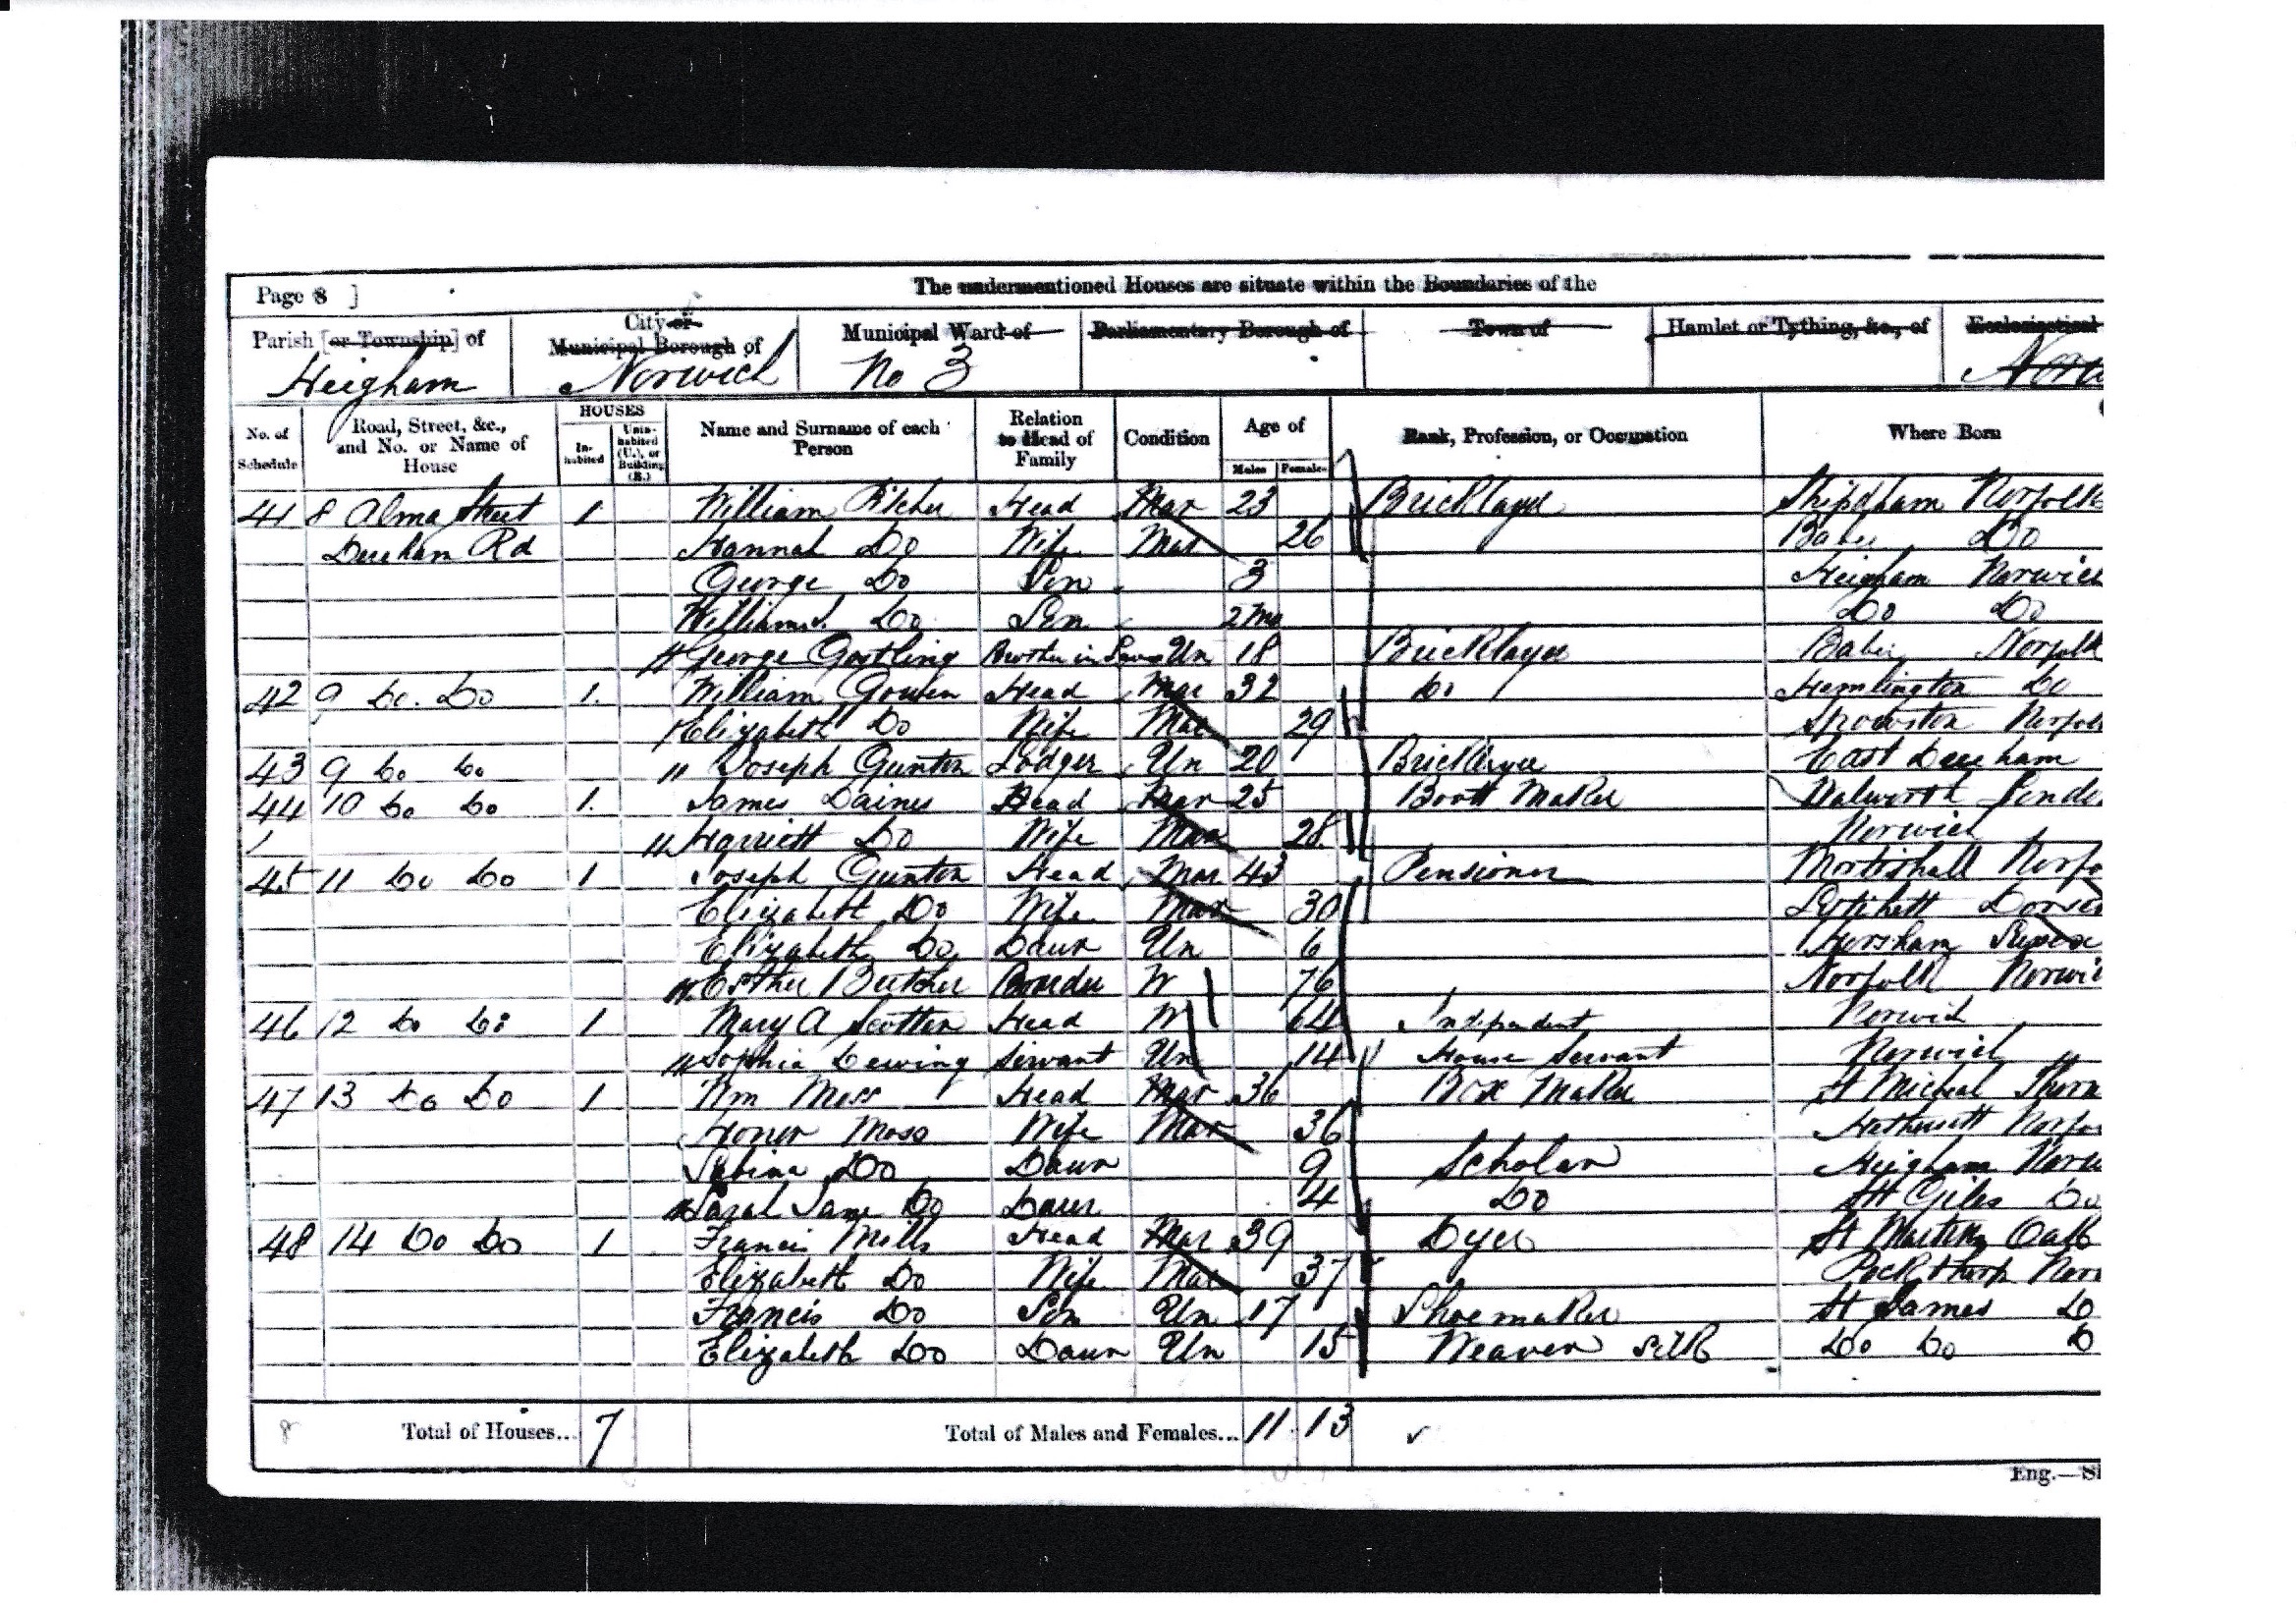 Page 8 ]
The undermentioned Houses are situate within the Boundaries of the
Parish [or Township] of City or Municipal Borough of Municipal Ward of Parliamentary Borough of Town of Hamlet or Tything, &c., of Ecclesiastical
Heigham Norwich No 3
No. of Schedule Road, Street, &c., and No. or Name of House HOUSES In-habited Unin-habited (U.), or Building (B.) Name and Surname of each Person Relation to Head of Family Condition Age of Males Females Rank, Profession, or Occupation Where Born
41 8 Alma Street 1 William Pitcher Head Mar 23 Bricklayer Shipdham Norfolk
Dereham Rd Hannah Do Wife Mar 26 Do
George Do Son 3 Heigham Norwich
William Do Son 2 Mo Do Do
George Gostling Brother in Law Un 18 Bricklayer Norfolk
42 9 Do. Do 1. William Gowen Head Mar 32 Do Hemlington Do
Elizabeth Do Wife Mar 29 Sprowston Norfolk
43 9 Do Do Joseph Gunton Lodger Un 20 Bricklayer East Dereham
44 10 Do Do 1. James Daines Head Mar 25 Boott Maker Walworth
Harriett Do Wife Mar 28 Norwich
45 11 Do Do 1 Joseph Gunton Head Mar 43 Pensioner Norfo
Elizabeth Do Wife Mar 30 Lytchett Dorset
Elizabeth Do Daur Un 6 Horsham Sussex
Esther Butcher Boarder W 76 Norfolk Norwi
46 12 Do Do 1 Mary A Scotten Head W 64 Independent Norwich
Sophia Dewing Servant Un 14 House Servant Norwich
47 13 Do Do 1 Wm Moss Head Mar 36 Box Maker St Micheal Thorn
Honor Moss Wife Mar 36 Hethersett Norfo
Sabina Do Daur 9 Scholar Heigham Norw
Sarah Jane Do Daur 4 Do St Giles Do
48 14 Do Do 1 Francis Mills Head Mar 39 Dyer St Martin Oak
Elizabeth Do Wife Mar 37 Pockthorp Nor
Francis Do Son Un 17 Shoemaker St James D
Elizabeth Do Daur Un 15 Weaver silk Do Do D
8 Total of Houses... 7 Total of Males and Females... 11 13
Eng.—S